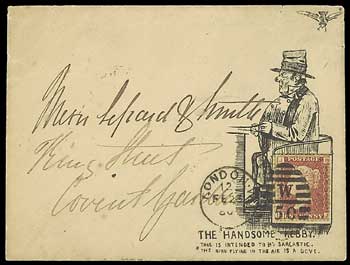 Messrs Lepard & Smith
King Street
Covent Gar
LONDON
12
FE 23
60
POSTAGE
W
50
THE HANDSOME KEBBY.
THIS IS INTENDED TO BE SARCASTIC.
THE BIRD FLYING IN THE AIR IS A DOVE.